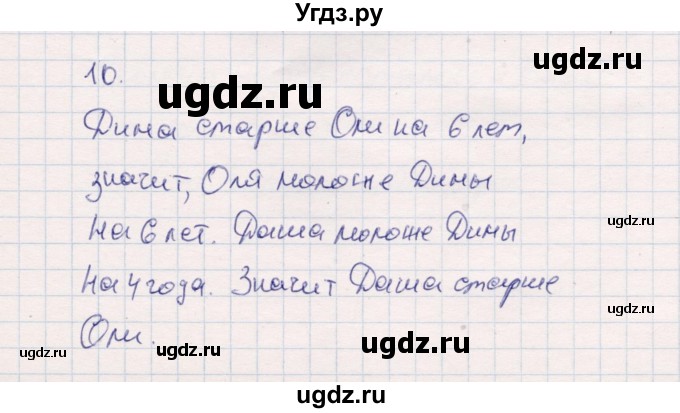 Угдз.ру
10.
ugdz.ru
Дима старше Оли на 6 лет,
значит, Оля моложе Димы
ugdz.ru
на 6 лет. Даша моложе Димы
на 4 года. Значит Даша старше
Оли.
ugdz.ru
ugdz.ru
ugdz.ru
ugdz.ru
ugdz.ru